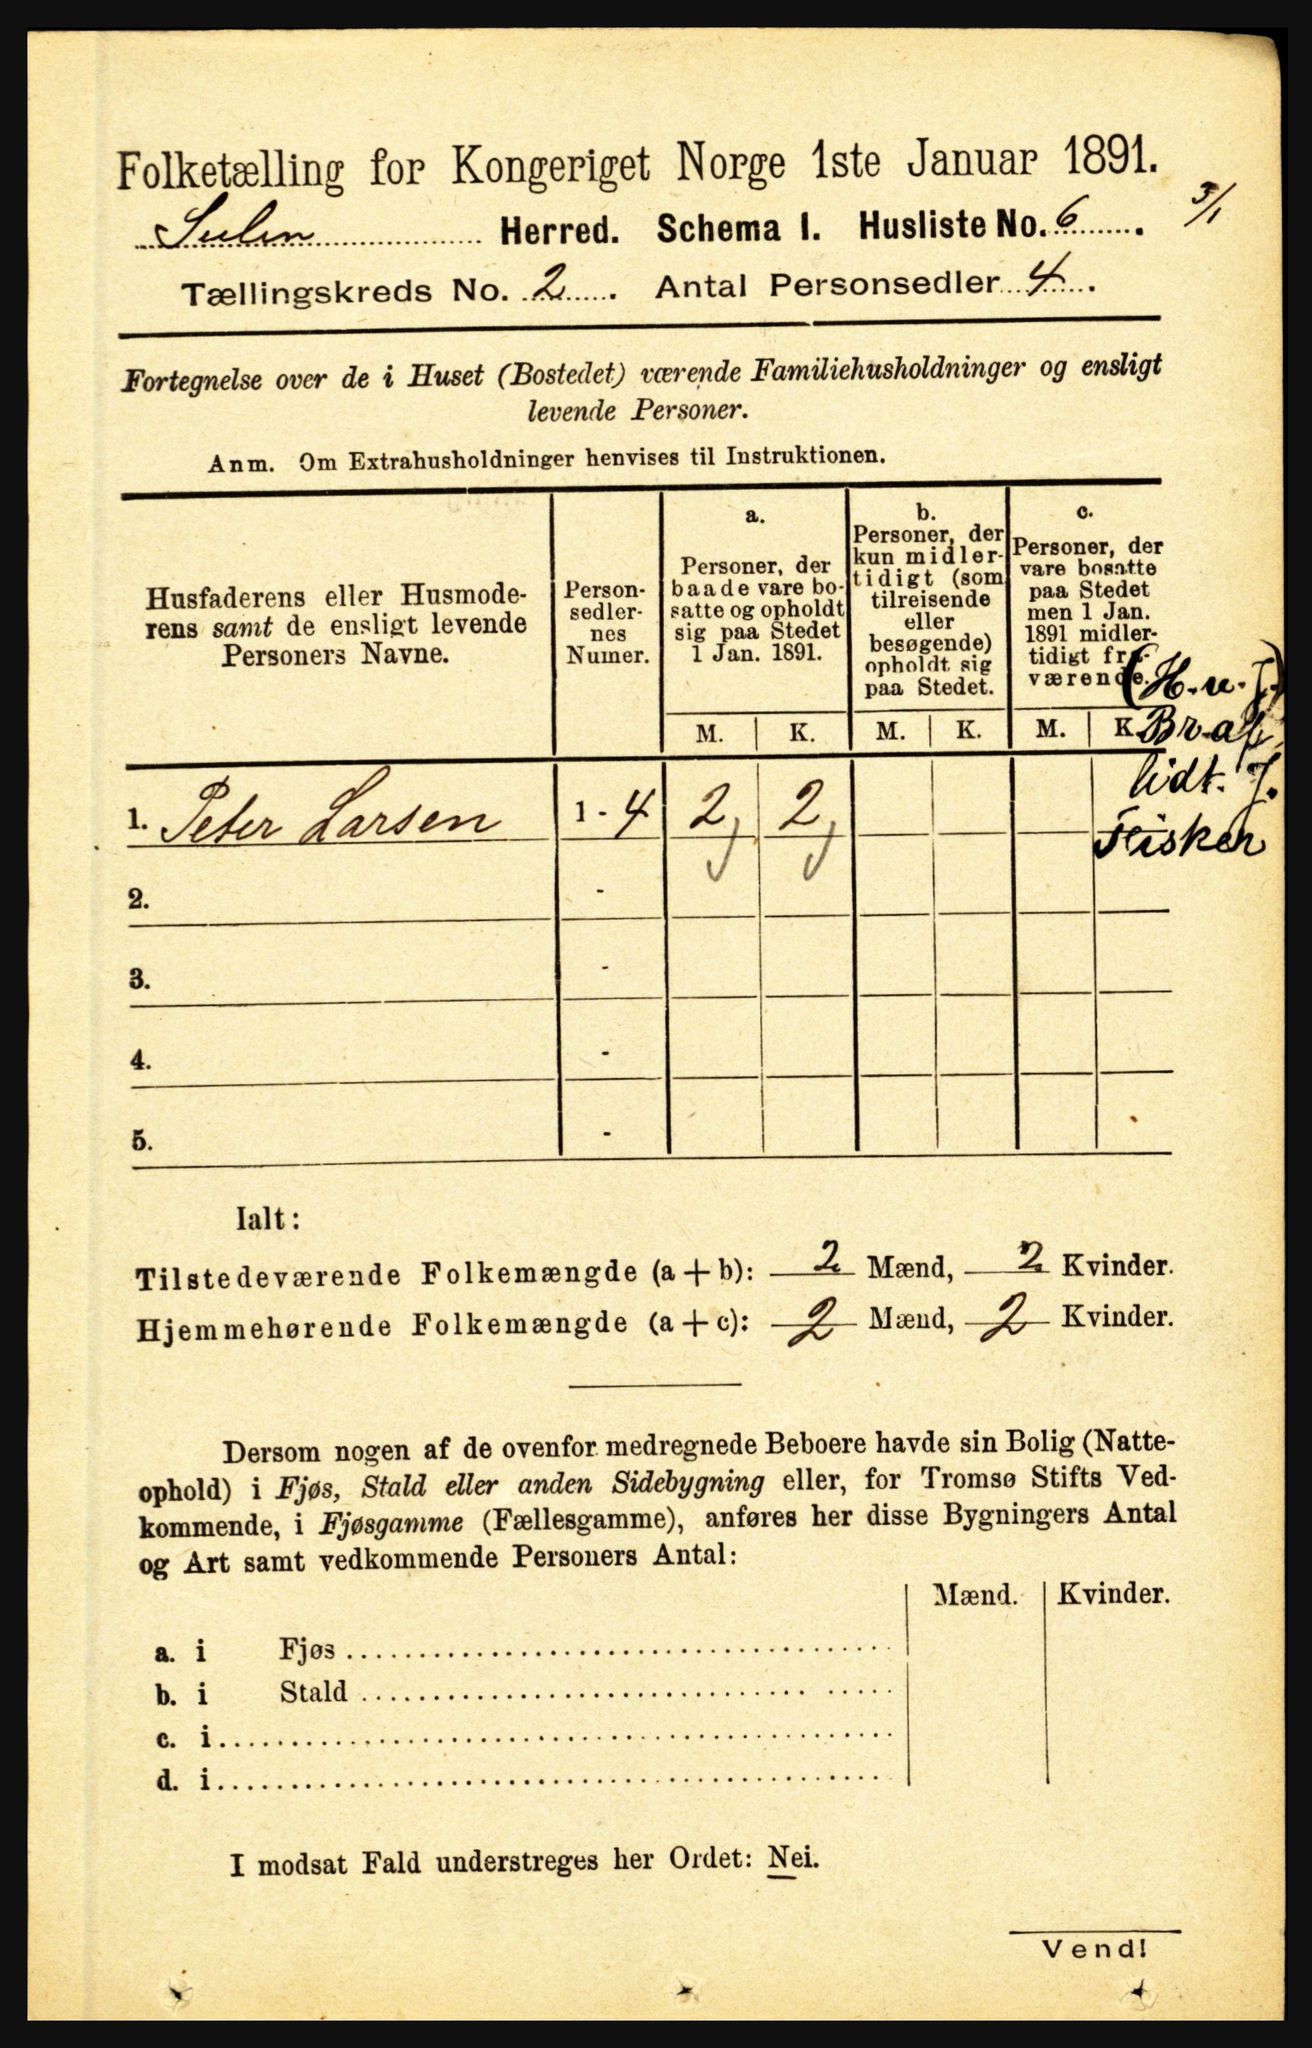 Folketælling for Kongeriget Norge 1ste Januar 1891.
3/1
Sulen Herred. Schema I. Husliste No. 6.
Tællingskreds No. 2. Antal Personsedler 4.
Fortegnelse over de i Huset (Bostedet) værende Familiehusholdninger og ensligt
levende Personer.
Anm. Om Extrahusholdninger henvises til Instruktionen.
Husfaderens eller Husmode-
rens samt de ensligt levende
Personers Navne.
Person-
sedler-
nes
Numer.
a.
Personer, der
baade vare bo-
satte og opholdt
sig paa Stedet
1 Jan. 1891.
b.
Personer, der
kun midler-
tidigt (som
tilreisende
eller
besøgende)
opholdt sig
paa Stedet.
c.
Personer, der
vare bosatte
paa Stedet
men 1 Jan.
1891 midler-
tidigt fra-
værende.
(H. u. J.)
M. K. M. K. M. K.
Lidt. J.
Fisker
1. Peter Larsen 1 - 4 2 2
2. -
3. -
4. -
5. -
Ialt:
Tilstedeværende Folkemængde (a + b): 2 Mænd, 2 Kvinder.
Hjemmehørende Folkemængde (a + c): 2 Mænd, 2 Kvinder.
Dersom nogen af de ovenfor medregnede Beboere havde sin Bolig (Natte-
ophold) i Fjøs, Stald eller anden Sidebygning eller, for Tromsø Stifts Ved-
kommende, i Fjøsgamme (Fællesgamme), anføres her disse Bygningers Antal
og Art samt vedkommende Personers Antal:
Mænd. Kvinder.
a. i Fjøs
b. i Stald
c. i
d. i
I modsat Fald understreges her Ordet: Nei.
Vend!